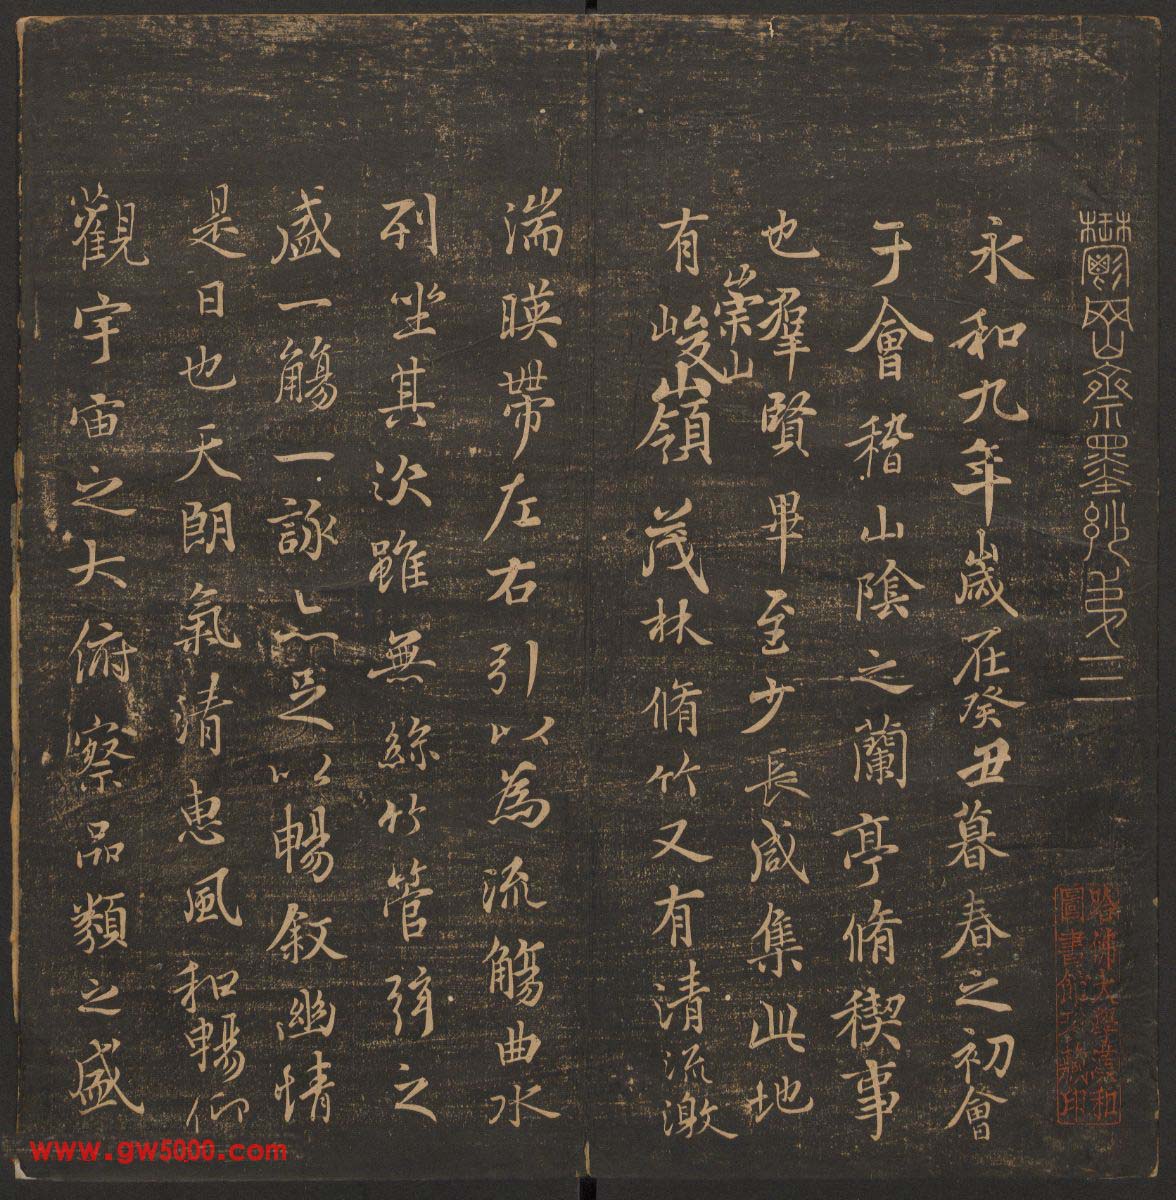 鬱岡齋墨妙弟三
哈佛大學漢和
圖書館珍藏印
永和九年歲在癸丑暮春之初會
于會稽山陰之蘭亭脩稧事
也群賢畢至少長咸集此地
有崇山峻領茂林脩竹又有清流激
湍暎帶左右引以為流觴曲水
列坐其次雖無絲竹管弦之
盛一觴一詠亦足以暢敘幽情
是日也天朗氣清惠風和暢仰
觀宇宙之大俯察品類之盛
www.gw5000.com